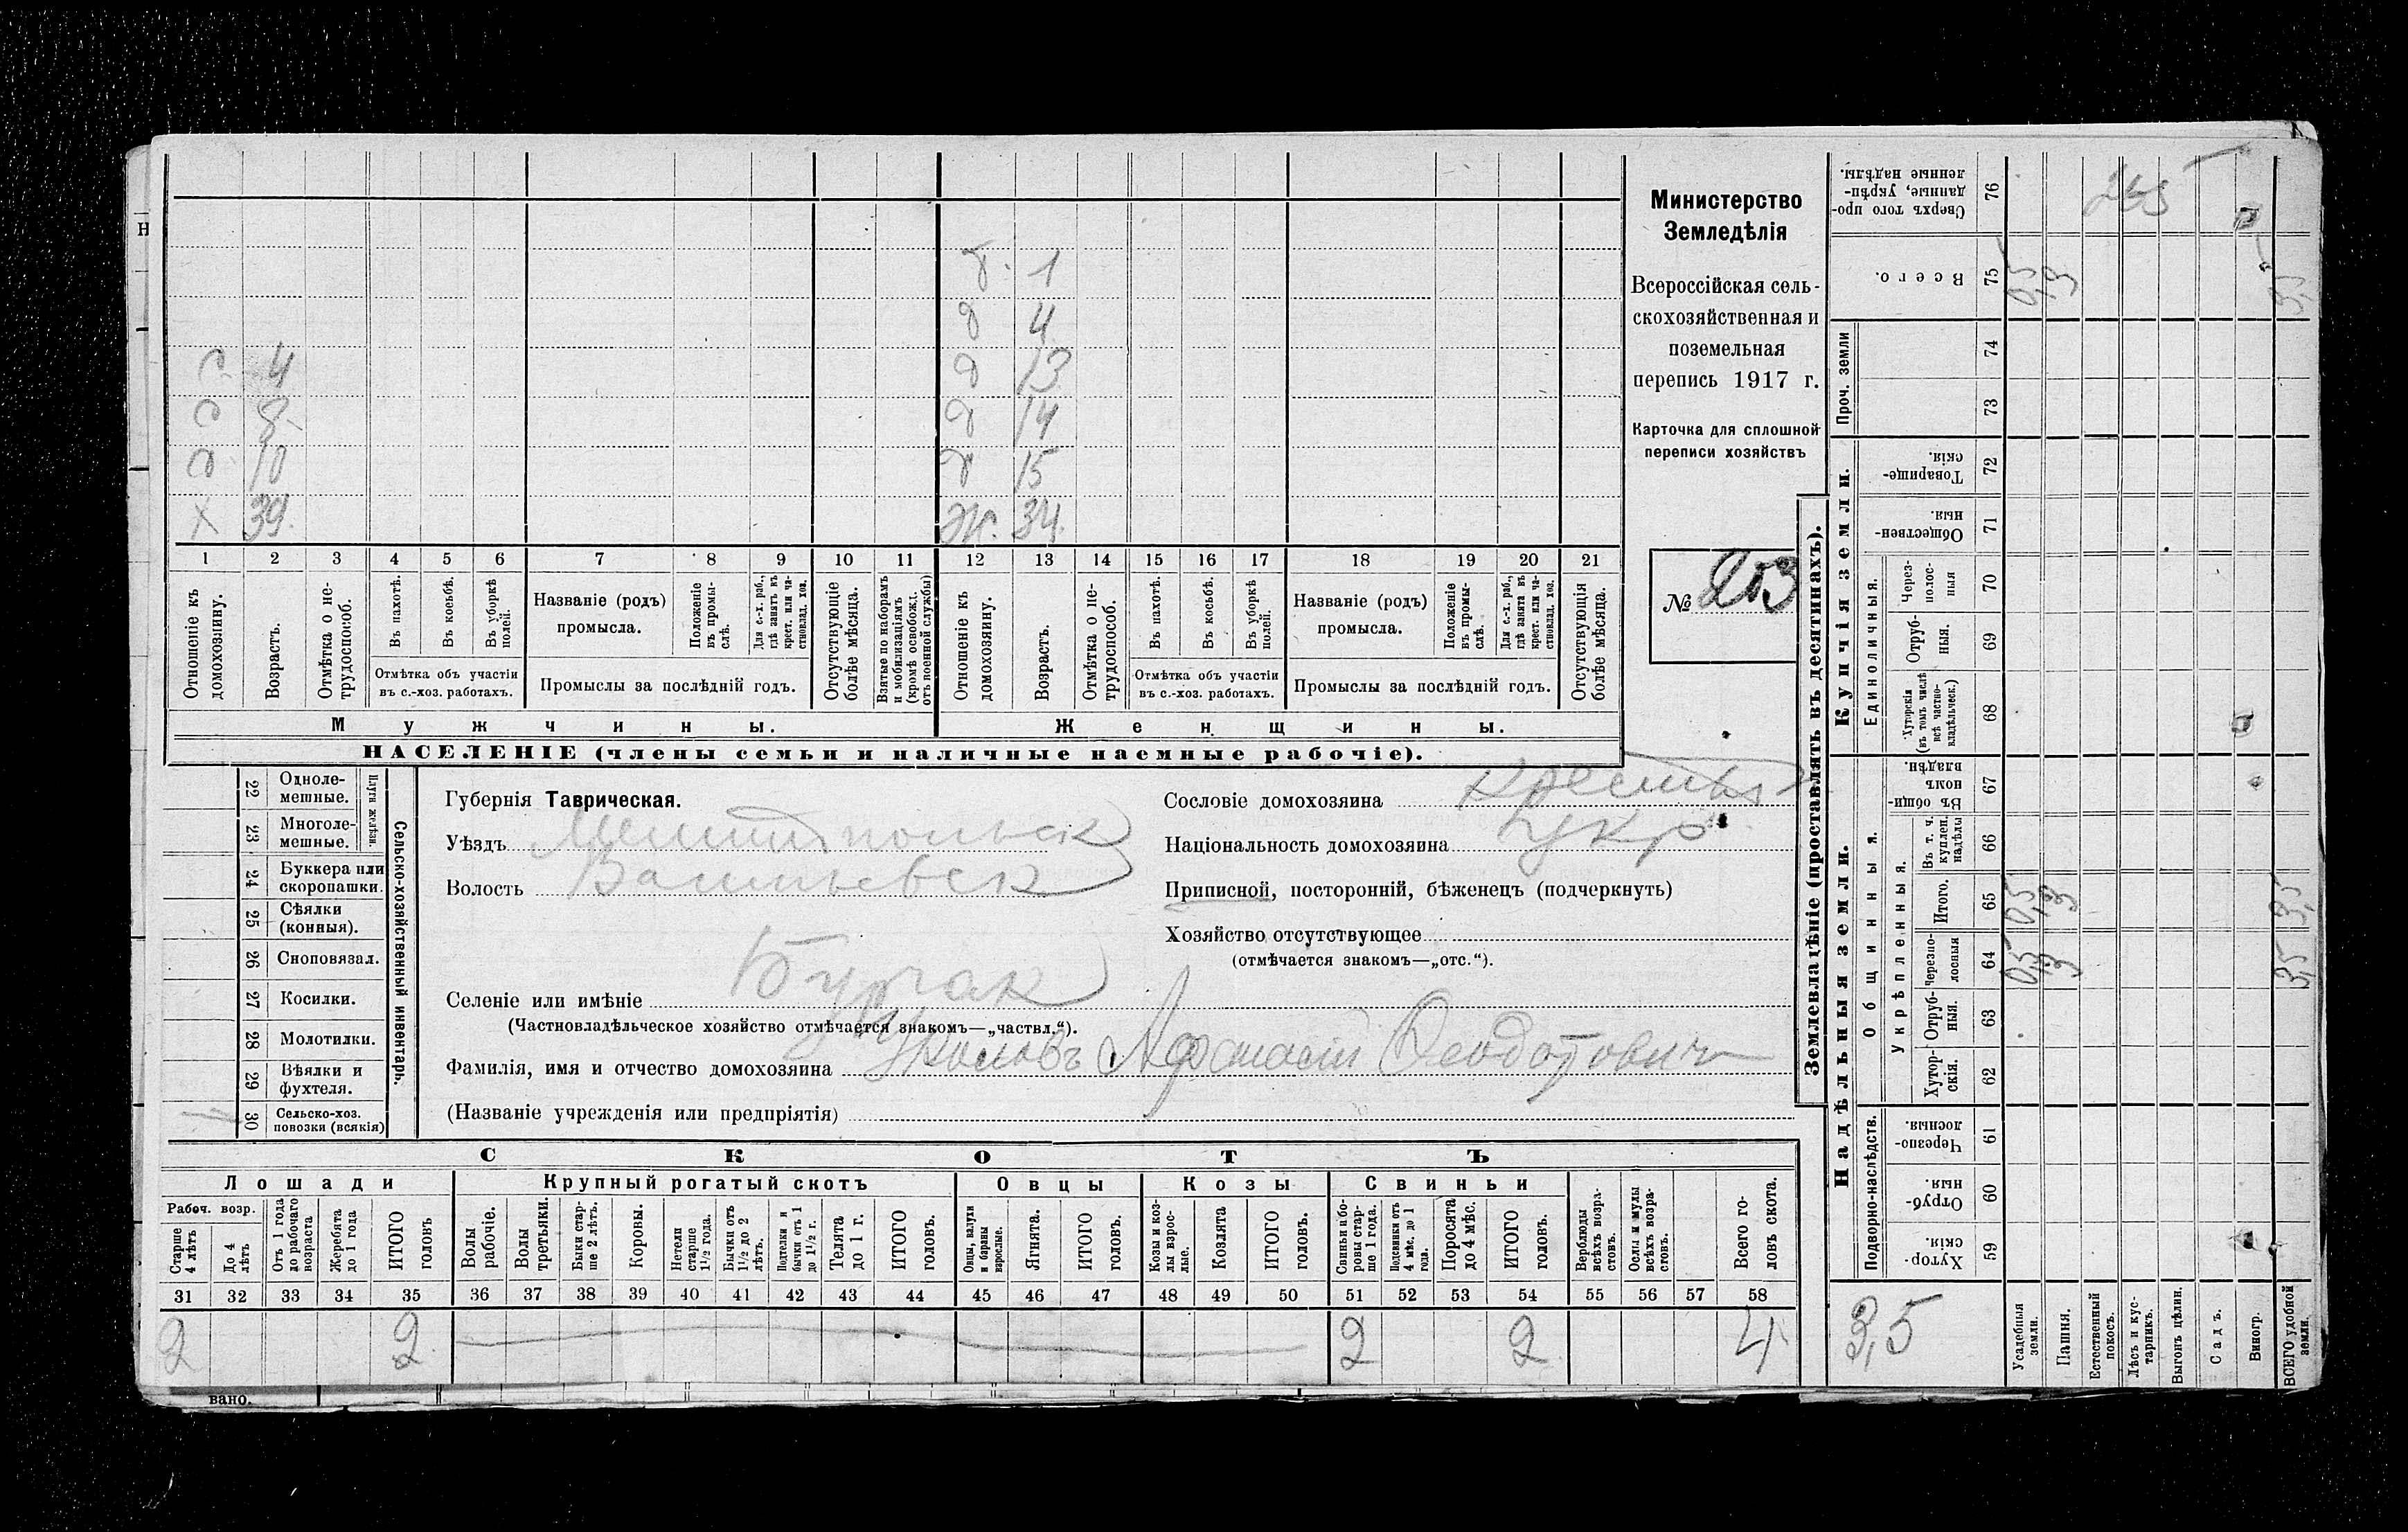 Министерство
Земледѣлія
Всероссійская сель-
скохозяйственная и
поземельная
перепись 1917 г.
Карточка для сплошной
переписи хозяйствъ
№ 203
Н
б. 1
д 4
с. 4 д 13
с 8 д 14
д 10 д 15
Х 39. Ж. 34.
1 2 3 4 5 6 7 8 9 10 11 12 13 14 15 16 17 18 19 20 21
Отношеніе къ домохозяину.
Возрастъ.
Отмѣтка о не-трудоспособ.
Въ пахотѣ.
Въ косьбѣ.
Въ уборкѣ полей.
Отмѣтка объ участіи
въ с.-хоз. работахъ.
Названіе (родъ)
промысла.
Положеніе въ промы-слѣ.
Для с.-х. раб., гдѣ занятъ въ крест. или ча-стновлад. хоз.
Промыслы за послѣдній годъ.
Отсутствующіе болѣе мѣсяца.
Взятые по наборамъ и мобилизаціямъ (кромѣ освобожд. отъ военной службы)
Отношеніе къ домохозяину.
Возрастъ.
Отмѣтка о не-трудоспособ.
Въ пахотѣ.
Въ косьбѣ.
Въ уборкѣ полей.
Отмѣтка объ участіи
въ с.-хоз. работахъ.
Названіе (родъ)
промысла.
Положеніе въ промы-слѣ.
Для с.-х. раб., гдѣ занята въ крест. или ча-стновлад. хоз.
Промыслы за послѣдній годъ.
Отсутствующія болѣе мѣсяца.
Мужчины. Женщины.
НАСЕЛЕНІЕ (члены семьи и наличные наемные рабочіе).
Сельско-хозяйственный инвентарь.
Плуги желѣзн.
22 Одноле-мешные.
23 Многоле-мешные.
24 Буккера или скоропашки.
25 Сѣялки (конныя).
26 Сноповязал.
27 Косилки.
28 Молотилки.
29 Вѣялки и фухтеля.
30 Сельско-хоз. повозки (всякія)
1
Губернія Таврическая.
Уѣздъ Мелитопольск
Волость Васильевск
Селеніе или имѣніе Бурчак
(Частновладѣльческое хозяйство отмѣчается знакомъ—„частвл.“).
Фамилія, имя и отчество домохозяина Афанасій Феодотовичъ
(Названіе учрежденія или предпріятія)
Сословіе домохозяина Крестья
Національность домохозяина укр
Приписной, посторонній, бѣженецъ (подчеркнуть)
Хозяйство отсутствующее
(отмѣчается знакомъ—„отс.“).
СКОТЪ
Лошади Крупный рогатый скотъ Овцы Козы Свиньи
Рабоч. возр.
Старше 4 лѣтъ
До 4 лѣтъ
Отъ 1 года до рабочаго возраста
Жеребята до 1 года
ИТОГО головъ
Волы рабочіе.
Волы третьяки.
Быки стар-ше 2 лѣтъ.
Коровы.
Нетели старше 1½ года.
Бычки отъ 1½ до 2 лѣтъ.
Подтелки и бычки отъ 1 до 1½ г.
Телята до 1 г.
ИТОГО головъ.
Овцы, валухи и бараны взрослые.
Ягнята.
ИТОГО головъ.
Козы и коз-лы взрос-лые.
Козлята
ИТОГО головъ.
Свиньи и бо-ровы стар-ше 1 года.
Подсвинки отъ 4 мѣс. до 1 года.
Поросята до 4 мѣс.
ИТОГО головъ.
Верблюды всѣхъ возра-стовъ.
Ослы и мулы всѣхъ возра-стовъ.
Всего го-ловъ скота.
31 32 33 34 35 36 37 38 39 40 41 42 43 44 45 46 47 48 49 50 51 52 53 54 55 56 57 58
2 2 2 2 4
вано.
Землевладѣніе (проставлять въ десятинахъ).
Купчія земли.
Надѣльныя земли.
Проч. земли
Единоличныя.
Общинныя.
Укрѣпленныя.
Подворно-наслѣдств.
76 Сверхъ того про-данные, укрѣп-ленные надѣлы.
75 Всего. 0,5 3 3,5
74
73
72 Товарище-скія.
71 Обществен-ныя.
70 Через-полос-ныя
69 Отруб-ныя.
68 Хуторскія (въ томъ числѣ всѣ частно-владѣльческ.)
67 Въ общи-номъ владѣн.
66 Въ т. ч. куплен. надѣлы
65 Итого. 0,5 3 3,5
64 Черезпо-лосныя 0,5 3 3,5
63 Отруб-ныя.
62 Хутор-скія.
61 Черезпо-лосныя.
60 Отруб-ныя.
59 Хутор-скія.
3,5
Усадебныя земли.
Пашня.
Естественный покосъ.
Лѣсъ и кус-тарникъ.
Выгонъ цѣлин.
Садъ.
Виногр.
ВСЕГО удобной земли.